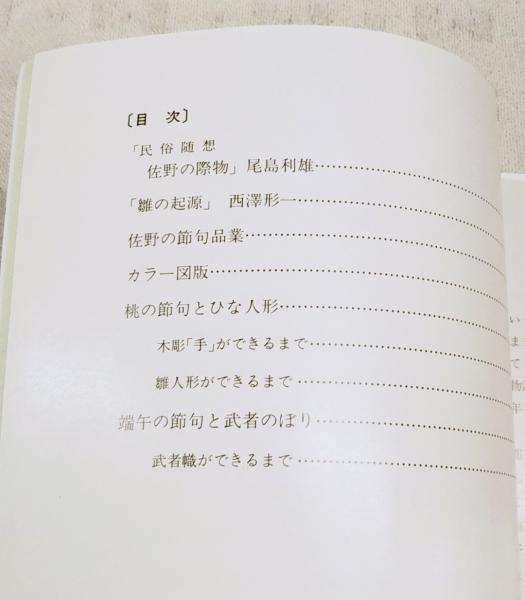 〔目 次〕
「民 俗 随 想
佐野の際物」尾島利雄……………………
「雛の起源」 西澤形一……………………
佐野の節句品業……………………
カラー図版……………………
桃の節句とひな人形……………………
木彫「手」ができるまで……………………
雛人形ができるまで……………………
端午の節句と武者のぼり……………………
武者幟ができるまで……………………